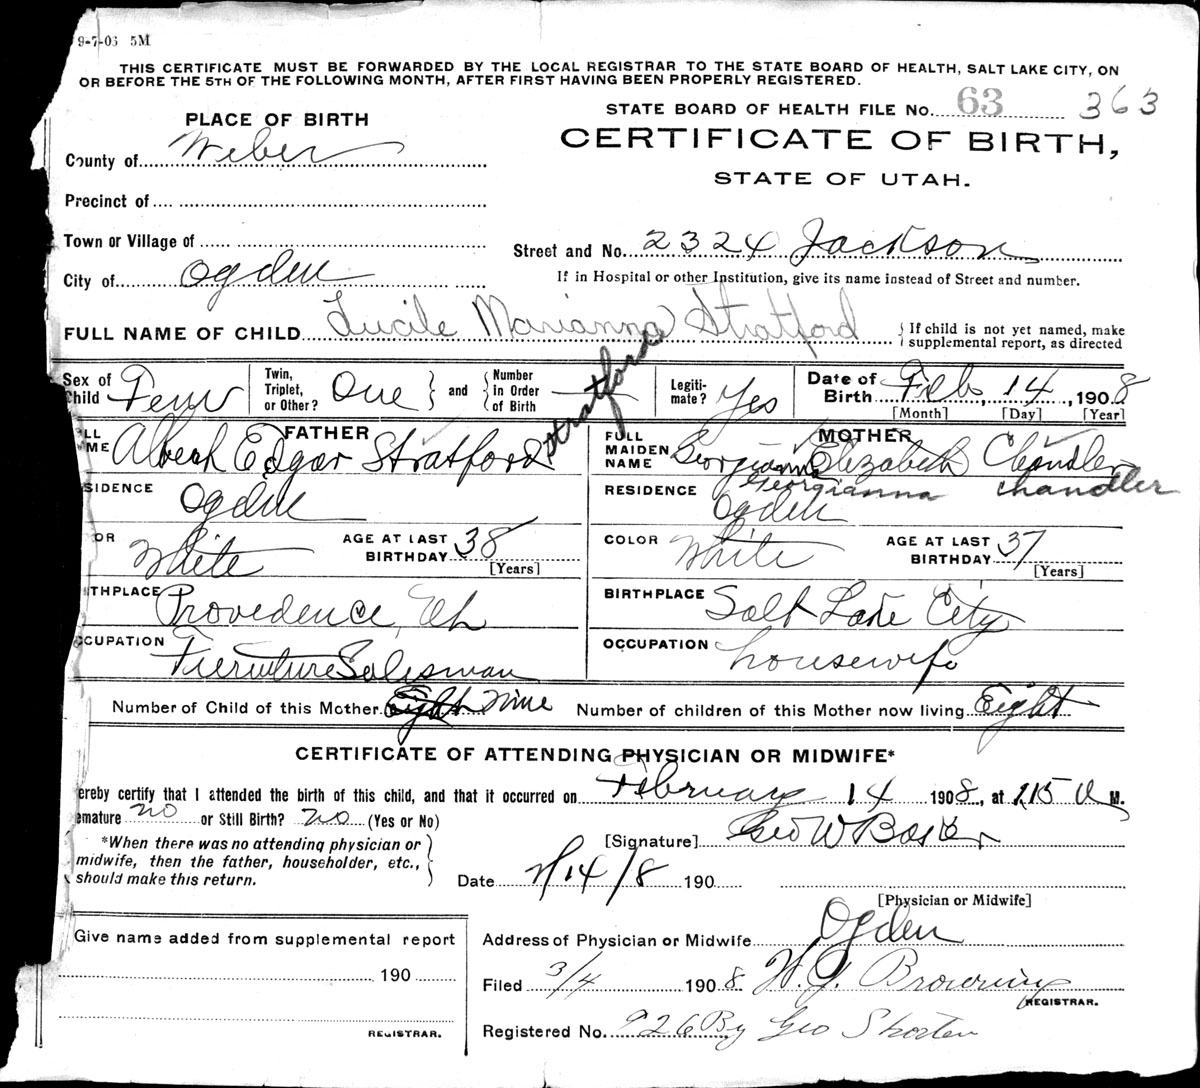 9-7-03 5M
THIS CERTIFICATE MUST BE FORWARDED BY THE LOCAL REGISTRAR TO THE STATE BOARD OF HEALTH, SALT LAKE CITY, ON
OR BEFORE THE 5TH OF THE FOLLOWING MONTH, AFTER FIRST HAVING BEEN PROPERLY REGISTERED.
STATE BOARD OF HEALTH FILE No. 63 363
PLACE OF BIRTH
CERTIFICATE OF BIRTH,
STATE OF UTAH.
County of Weber
Precinct of
Town or Village of
Street and No. 2324 Jackson
City of Ogden
If in Hospital or other Institution, give its name instead of Street and number.
FULL NAME OF CHILD Lucile Marianna Stratford
{ If child is not yet named, make
supplemental report, as directed
Sex of
Child Fem
Twin,
Triplet,
or Other? One } and { Number
in Order
of Birth
Legiti-
mate? Yes
Date of
Birth Feb, 14, 1908
[Month] [Day] [Year]
FATHER
LL
ME Albert Edgar Stratford
Stratford
MOTHER
FULL
MAIDEN
NAME Georgianna Elizabeth Chandler
Georgianna Chandler
SIDENCE Ogden
RESIDENCE Ogden
OR White
AGE AT LAST
BIRTHDAY 38
[Years]
COLOR White
AGE AT LAST
BIRTHDAY 37
[Years]
THPLACE Providence, Uh
BIRTHPLACE Salt Lake City
CUPATION Furniture Salesman
OCCUPATION housewife
Number of Child of this Mother Eight Nine
Number of children of this Mother now living Eight
CERTIFICATE OF ATTENDING PHYSICIAN OR MIDWIFE*
ereby certify that I attended the birth of this child, and that it occurred on February 14 1908, at 115 A M.
emature no or Still Birth? no (Yes or No)
[Signature] Geo W Baker
*When there was no attending physician or
midwife, then the father, householder, etc.,
should make this return.
Date 2/14/8 190
[Physician or Midwife]
Give name added from supplemental report
190
REGISTRAR.
Address of Physician or Midwife Ogden
Filed 3/4 1908. H. J. Browning
REGISTRAR.
Registered No. 926 By Geo Shorten